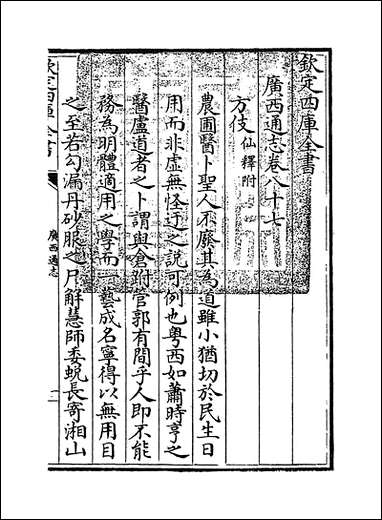 欽定四庫全書
廣西通志卷八十七
方伎 仙釋附
農圃醫卜聖人不廢其為道雖小猶切於民生日
用而非虛無怪迂之説可例也粤西如蕭時亨之
醫盧道者之卜謂與倉跗管郭有間乎人即不能
務為明體適用之學而一藝成名寧得以無用目
之至若勾漏丹砂服之尸解慧師委蜕長寄湘山
欽定四庫全書
廣西通志
一